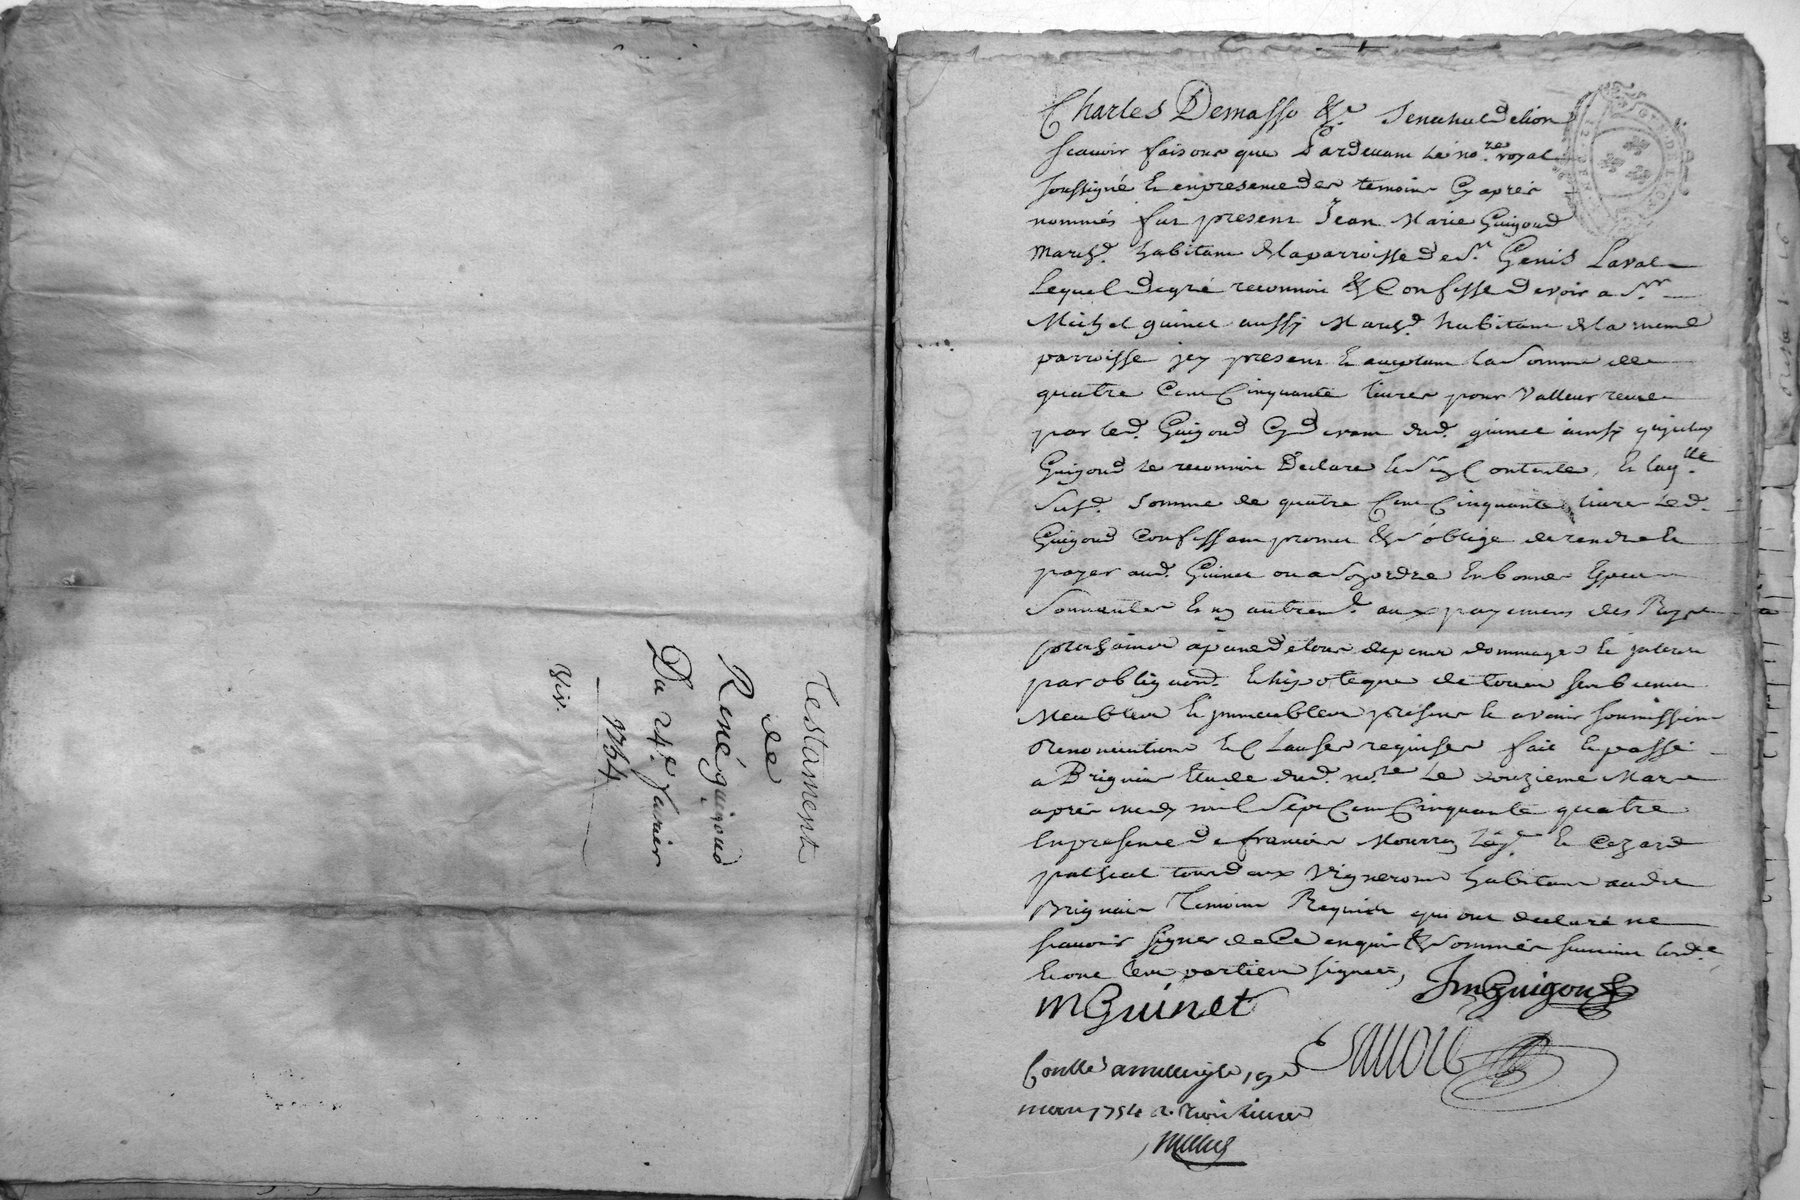 Testament
de
René guigoud
Du 24e. Janvier
1754
Charles Demasso &c Senechal de lion
scavoir faisons que Pardevant le nore. royal
soussigné et en presence des temoins Cy aprés
nommés fut present Jean Marie Guigoud
march. habitant de la parroisse de St. Genis Laval
lequel de gré reconnoit & Confesse devoir a Sr.
Michel guinet aussy march. habitant de la meme
parroisse jcy present et acceptant la Somme de
quatre Cent Cinquante livres pour Valleur receue
par led. Guigoud Cy devant dud. guinet ainsy que led.
Guigoud le reconnoit Declare et s'en Contente, et laqlle
susd. Somme de quatre Cent Cinquante livres led.
Guigoud Confessant promet & s'oblige de rendre et
payer aud. Guinet ou a Son ordre En bonnes Especes
Sonnantes et non autrement aux payements des Roys
prochains a peine de tous depens dommages et interets
par obligaon. et hipoteque de tous ses biens
Meubles et jmmeubles presents et avenir soumissions
Renonciations et Clauses requises fait et passé
a Brignais Etude dud. nore. Le douzieme Mars
aprés midy mil Sept Cent Cinquante quatre
En presence de francois Mourra et Cezard
patheal tous deux Vignerons habitans aud.
Brignais Temoins Requis qui ont declaré ne
scavoir signer de Ce enquis & Sommés suivant lord.ce
et ont les parties signées,
MGuinet JmGuigoud
Conllé a millery le 19e
mars 1754 R. trois livres